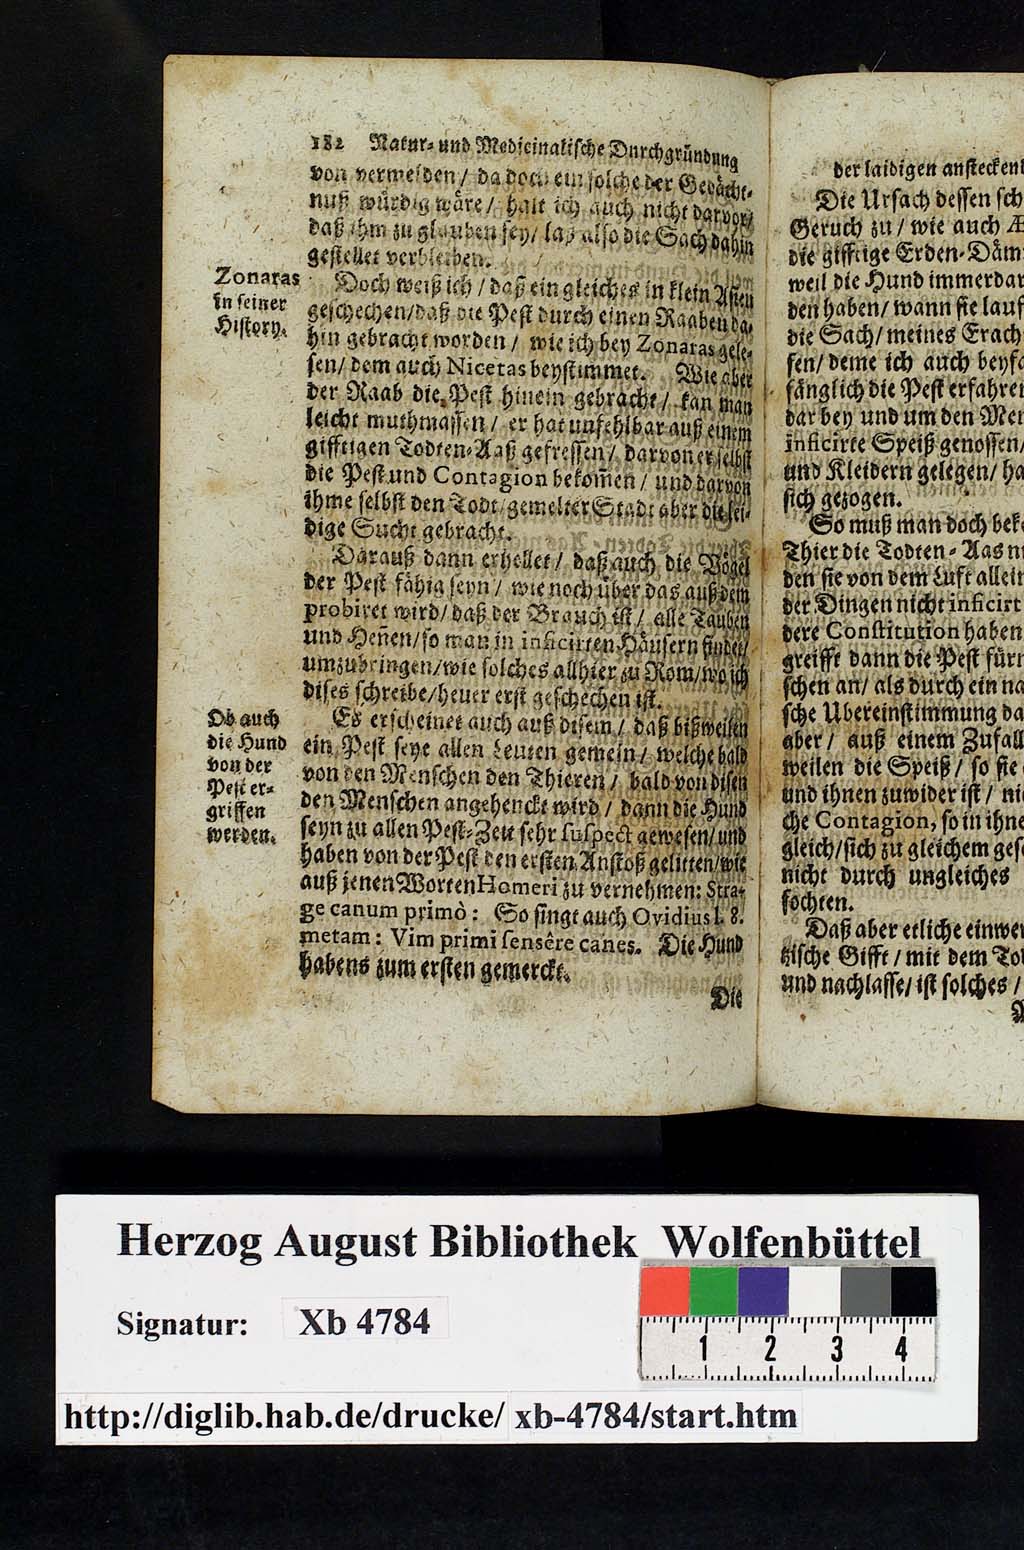 182 Natur- und Medicinalische Durchgründung
von vermelden / da doch ein solche der Gedächt-
nuß würdig wäre / halt ich auch nicht darvor /
daß ihm zu glauben sey / laß also die Sach dahin
gestellet verbleiben.
Zonaras
in seiner
History.
Doch weiß ich / daß ein gleiches in klein Asien
geschechen / daß die Pest durch einen Raaben da-
hin gebracht worden / wie ich bey Zonaras gele-
sen / dem auch Nicetas beystimmet. Wie aber
der Raab die Pest hinein gebracht / kan man
leicht muthmassen / er hat unfehlbar auß einem
gifftigen Todten-Aaß gefressen / darvon er selbst
die Pest und Contagion bekom̃en / und darvon
ihme selbst den Todt / gemelter Stadt aber die lei-
dige Sucht gebracht.
Darauß dann erhellet / daß auch die Vögel
der Pest fähig seyn / wie noch über das auß dem
probiret wird / daß der Brauch ist / alle Tauben
und Heñen / so man in inficirten Häusern findet /
umzubringen / wie solches allhier zu Rom / wo ich
dises schreibe / heuer erst geschechen ist.
Ob auch
die Hund
von der
Pest er-
griffen
werden.
Es erscheinet auch auß disem / daß bißweilen
ein Pest seye allen Leuten gemein / welche bald
von den Menschen den Thieren / bald von disen
den Menschen angehenckt wird / dann die Hund
seyn zu allen Pest-Zeit sehr suspect gewesen / und
haben von der Pest den ersten Anstoß gelitten / wie
auß jenen Worten Homeri zu vernehmen: Stra-
ge canum primò: So singt auch Ovidius l. 8.
metam: Vim primi sensêre canes. Die Hund
habens zum ersten gemerckt.
Die
der laidigen ansteckent
Die Ursach dessen sch
Geruch zu / wie auch Æ
die gifftige Erden-Däm
weil die Hund immerdar
den haben / wann sie lauf
die Sach / meines Erach
sen / deme ich auch beyfa
fänglich die Pest erfahren
dar bey und um den Men
inficirte Speiß genossen /
und Kleidern gelegen / ha
sich gezogen.
So muß man doch beke
Thier die Todten-Aas ni
den sie von dem Luft allein
der Dingen nicht inficirt
dere Constitution haben
greifft dann die Pest fürn
schen an / als durch ein na
sche Ubereinstimmung da
aber / auß einem Zufall
weilen die Speiß / so sie
und ihnen zuwider ist / ni
che Contagion, so in ihne
gleich / sich zu gleichem ges
nicht durch ungleiches
fochten.
Daß aber etliche einwer
tzische Gifft / mit dem To
und nachlasse / ist solches /
Herzog August Bibliothek Wolfenbüttel
Signatur: Xb 4784
1 2 3 4
http://diglib.hab.de/drucke/ xb-4784/start.htm